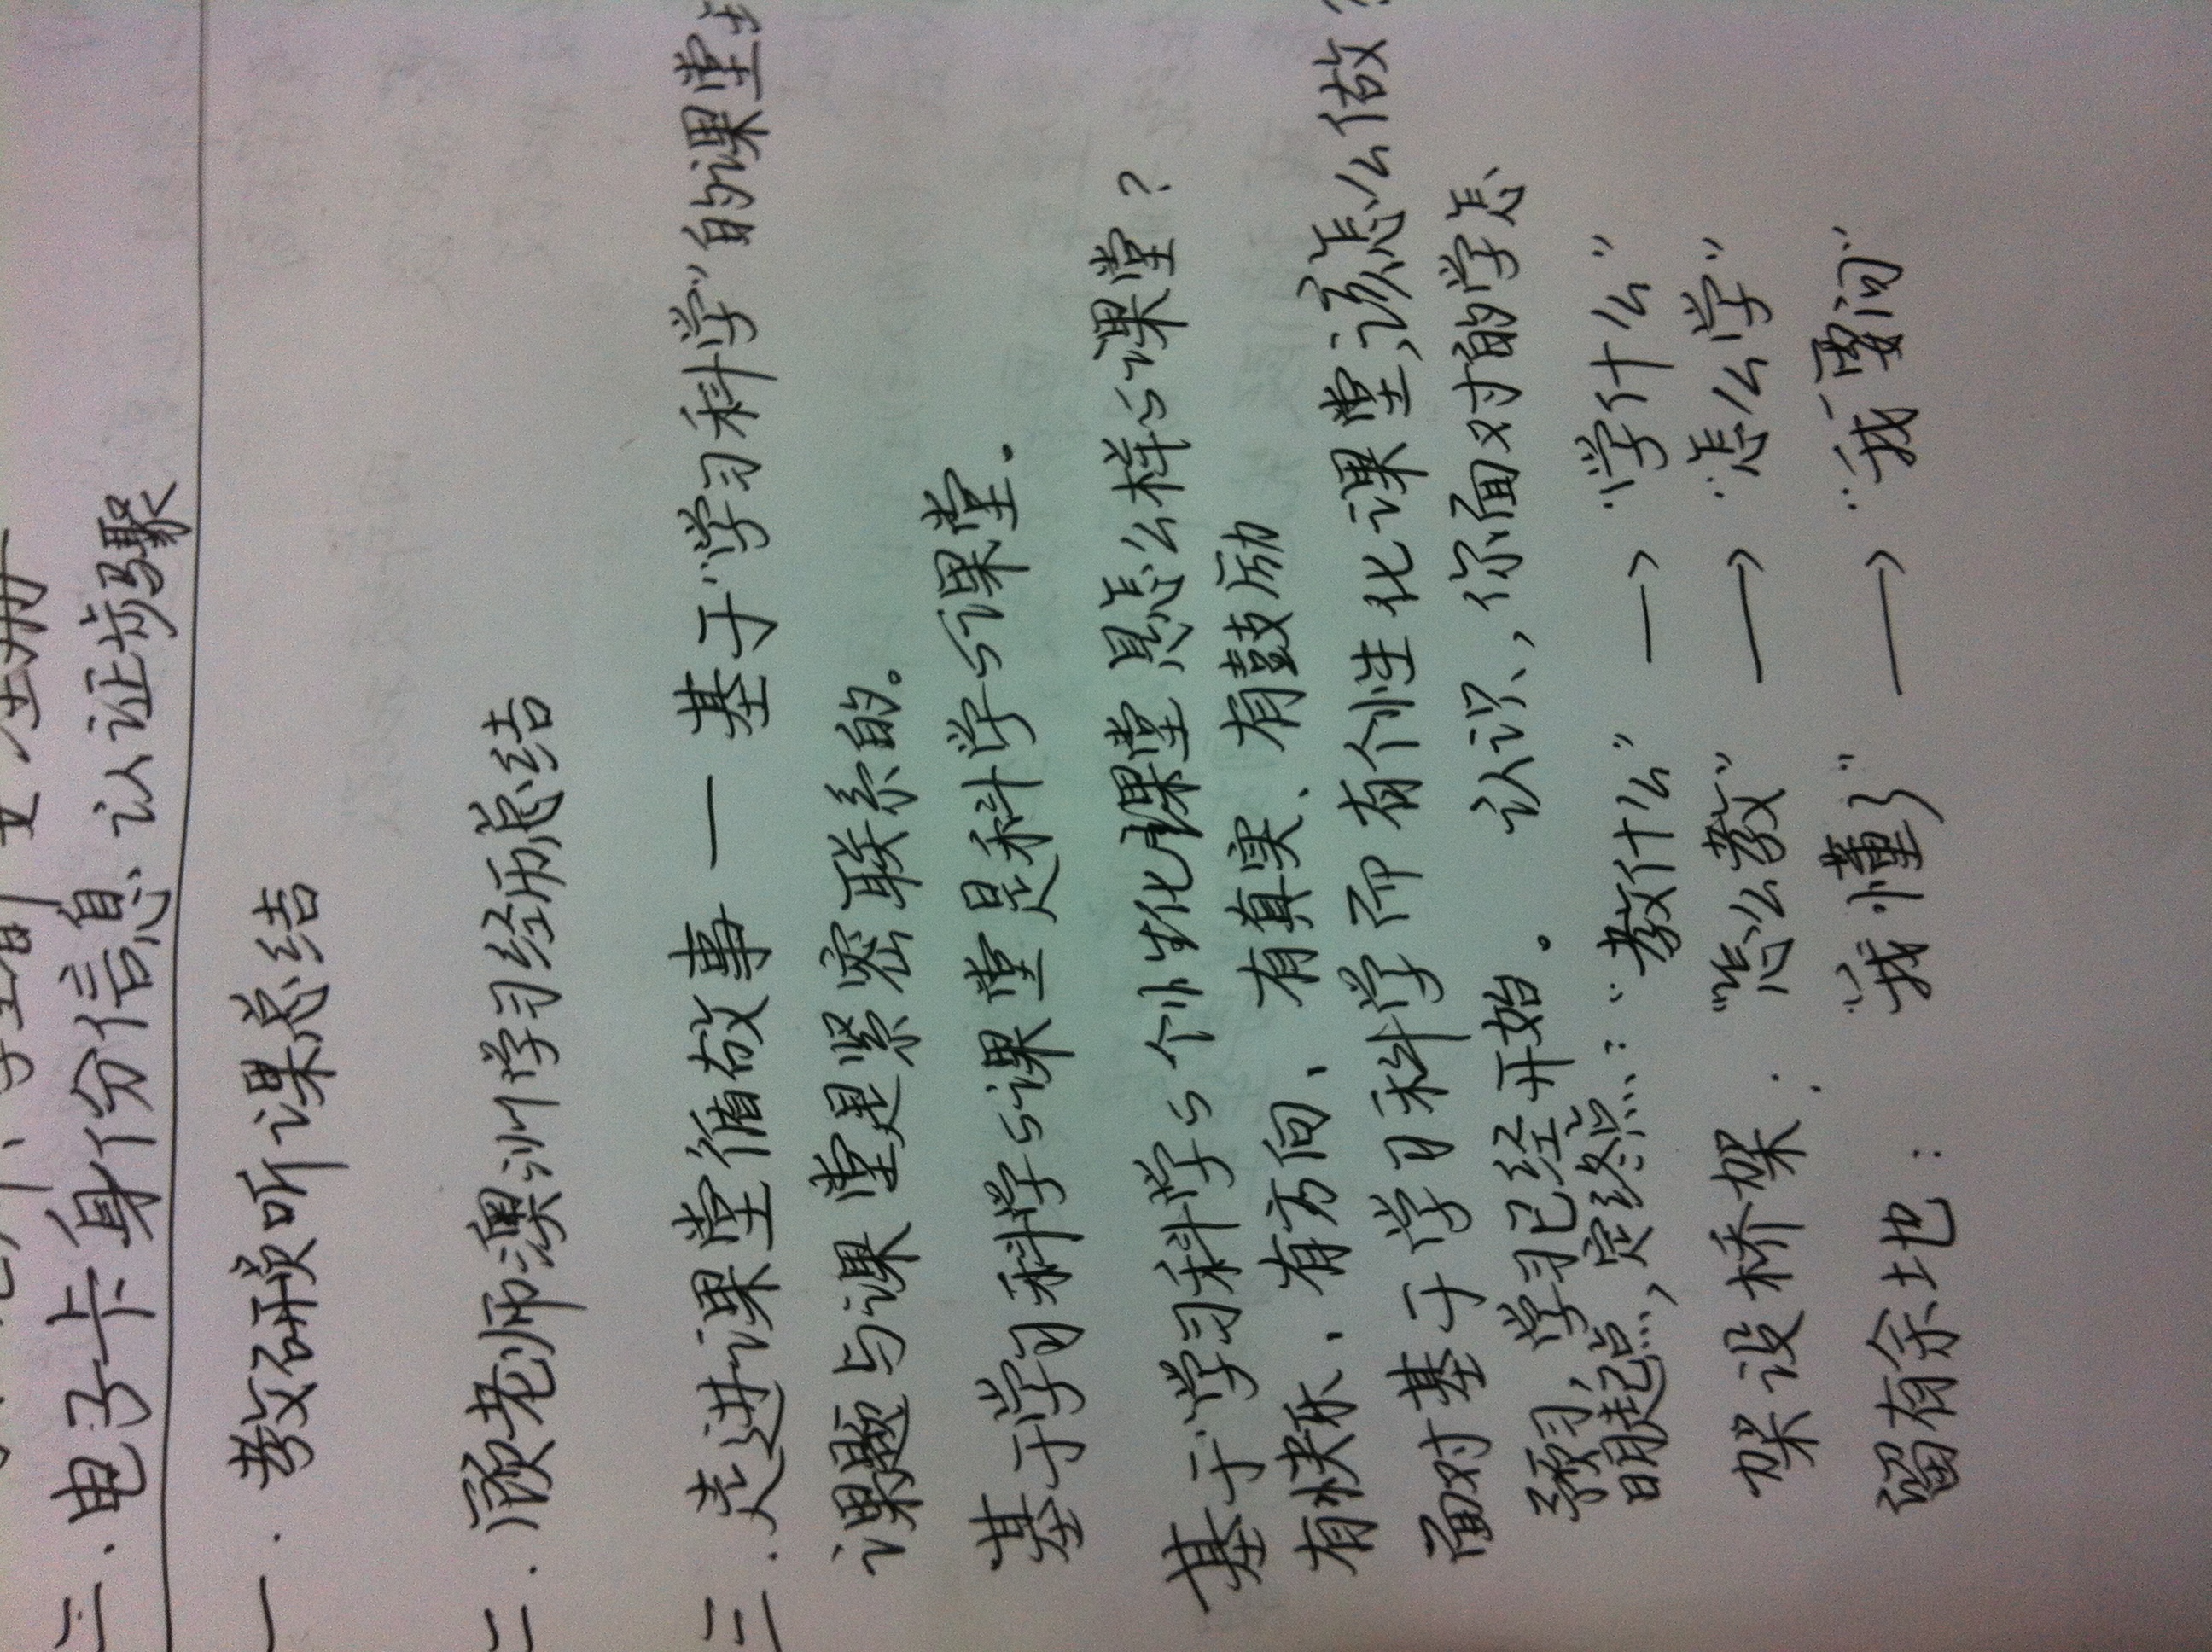 三.电子卡身份信息、认证步骤
一.教研员听课总结
二.顾老师澳洲学习经历总结
三.走进课堂循故事 — 基于“学习科学”的课堂
课题与课堂是紧密联系的。
基于学习科学的课堂是科学的课堂。
基于“学习科学”的个性化课堂是怎么样的课堂？
有快乐、有方向、有真实、有鼓励
面对基于学习科学而有个性化课堂,该怎么做？
预习,学习已经开始。 认识,你面对的学
明起点,定终点:“教什么” → “学什么”
架设桥架. “怎么教” → “怎么学”
留有余地: “我懂了” → “我要问”